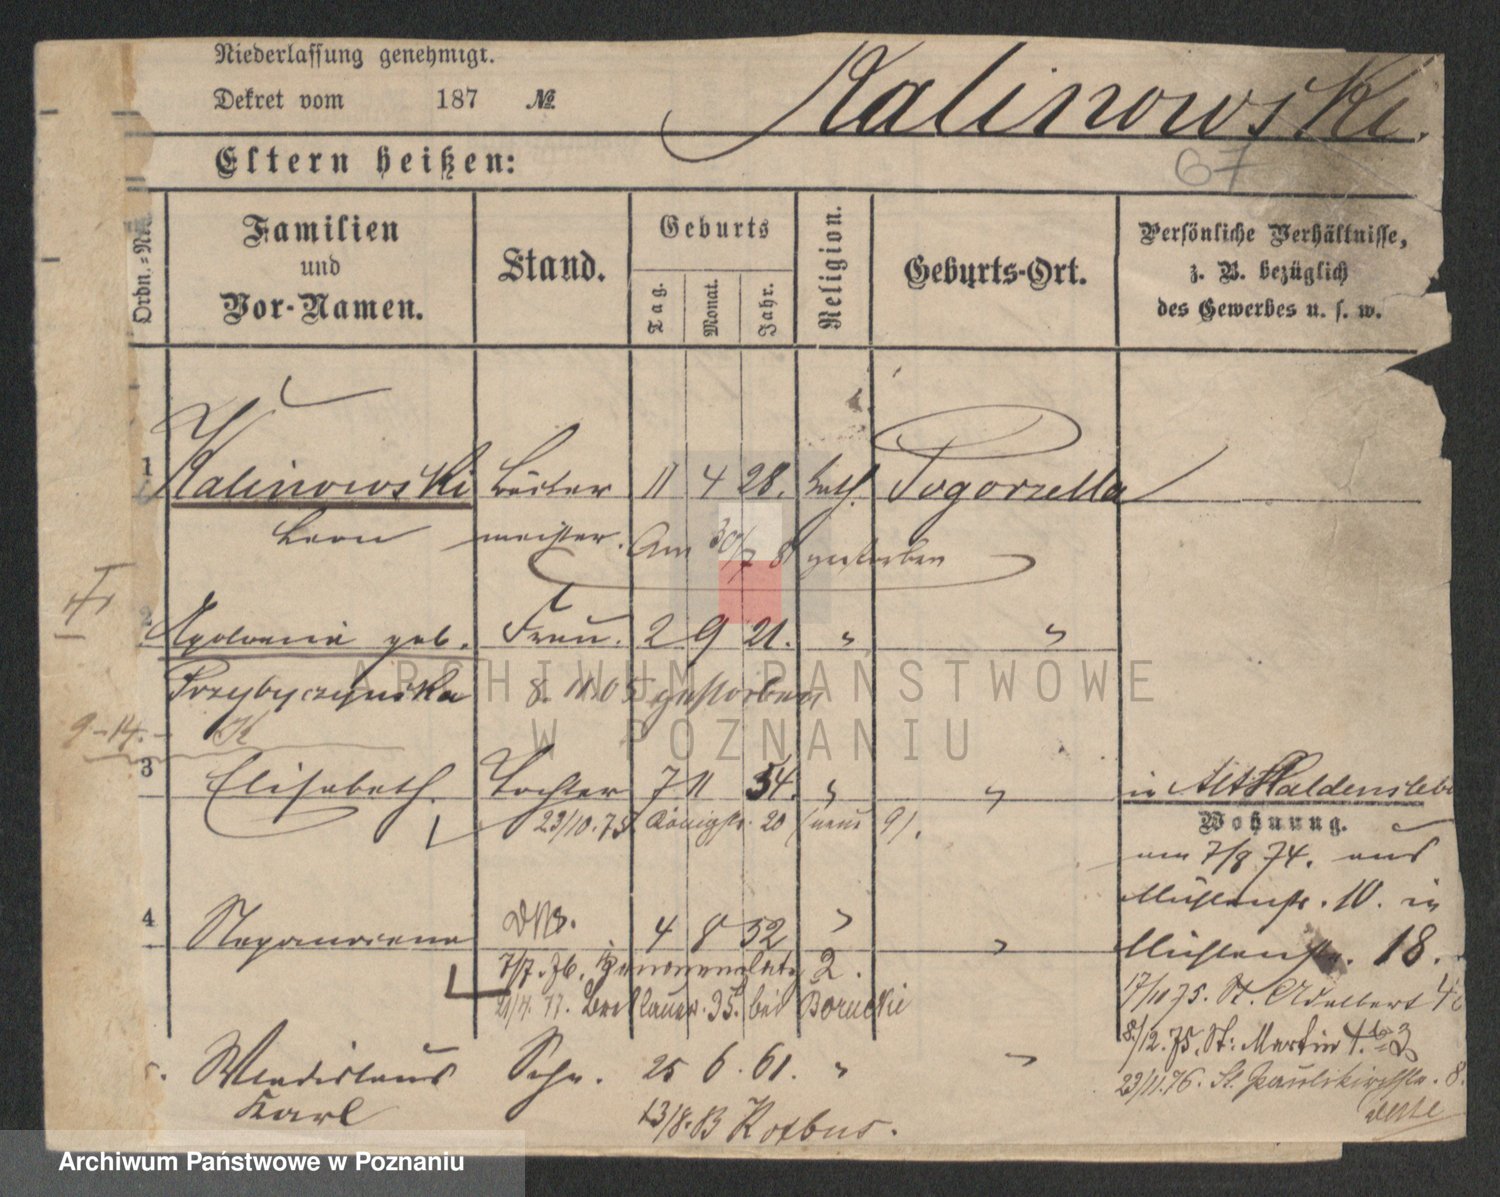 Niederlassung genehmigt.
Dekret vom 187 №
Kalinowski.
67
Eltern heißen:
Ordn.-Nr.
Familien
und
Vor-Namen.
Stand.
Geburts
Tag.
Monat.
Jahr.
Religion.
Geburts-Ort.
Persönliche Verhältnisse,
z. B. bezüglich
des Gewerbes u. s. w.
1 Kalinowski 11 4 28. kath. Pogorzella
Leon meister. Am 30/7 81 gestorben
2 Apolonia geb. Frau. 2 9 21. " "
Przybyczynska 8. 11. 05 gestorben
9-14.
3 Elisabeth. Tochter 7 11 54. " " in Alt Haldensleben
23/10. 75 Königstr. 20 (neue 9).
Wohnung.
am 7/8 74. aus
Mühlenstr. 10. in
4 4 8 52 " "
Mühlenstr. 18.
7/7. 76. Kanonenplatz 2.
17/10 75. St. Adalbert
21/4. 77. Breslauer. 35. bei Borucki
8/12. 75. St. Martin
5. Wladislaus Sohn. 25 6. 61. " "
23/11. 76. St. Paulikirchstr. 8.
Karl
13/8. 83 Kotbus.
ARCHIWUM PAŃSTWOWE
W POZNANIU
Archiwum Państwowe w Poznaniu